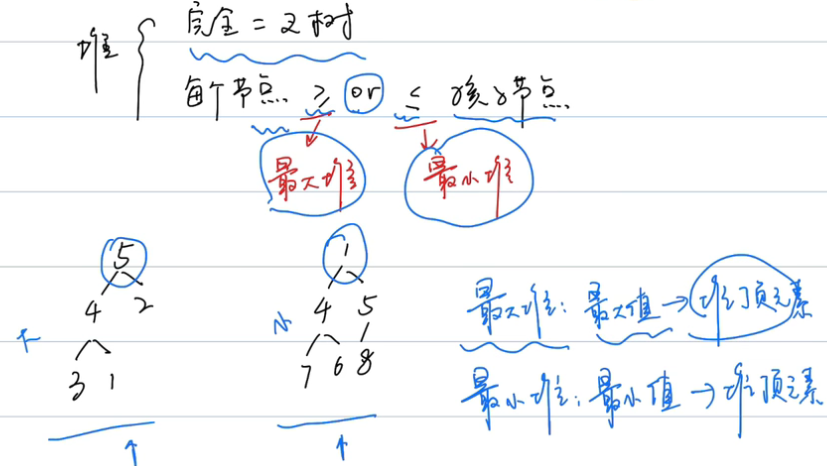 堆 { 完全二叉树
每个节点 ≥ or ≤ 孩子节点
最大堆 最小堆
5
4 2
大
3 1
1
4 5
小
7 6 8
最大堆：最大值→堆顶元素
最小堆：最小值→堆顶元素